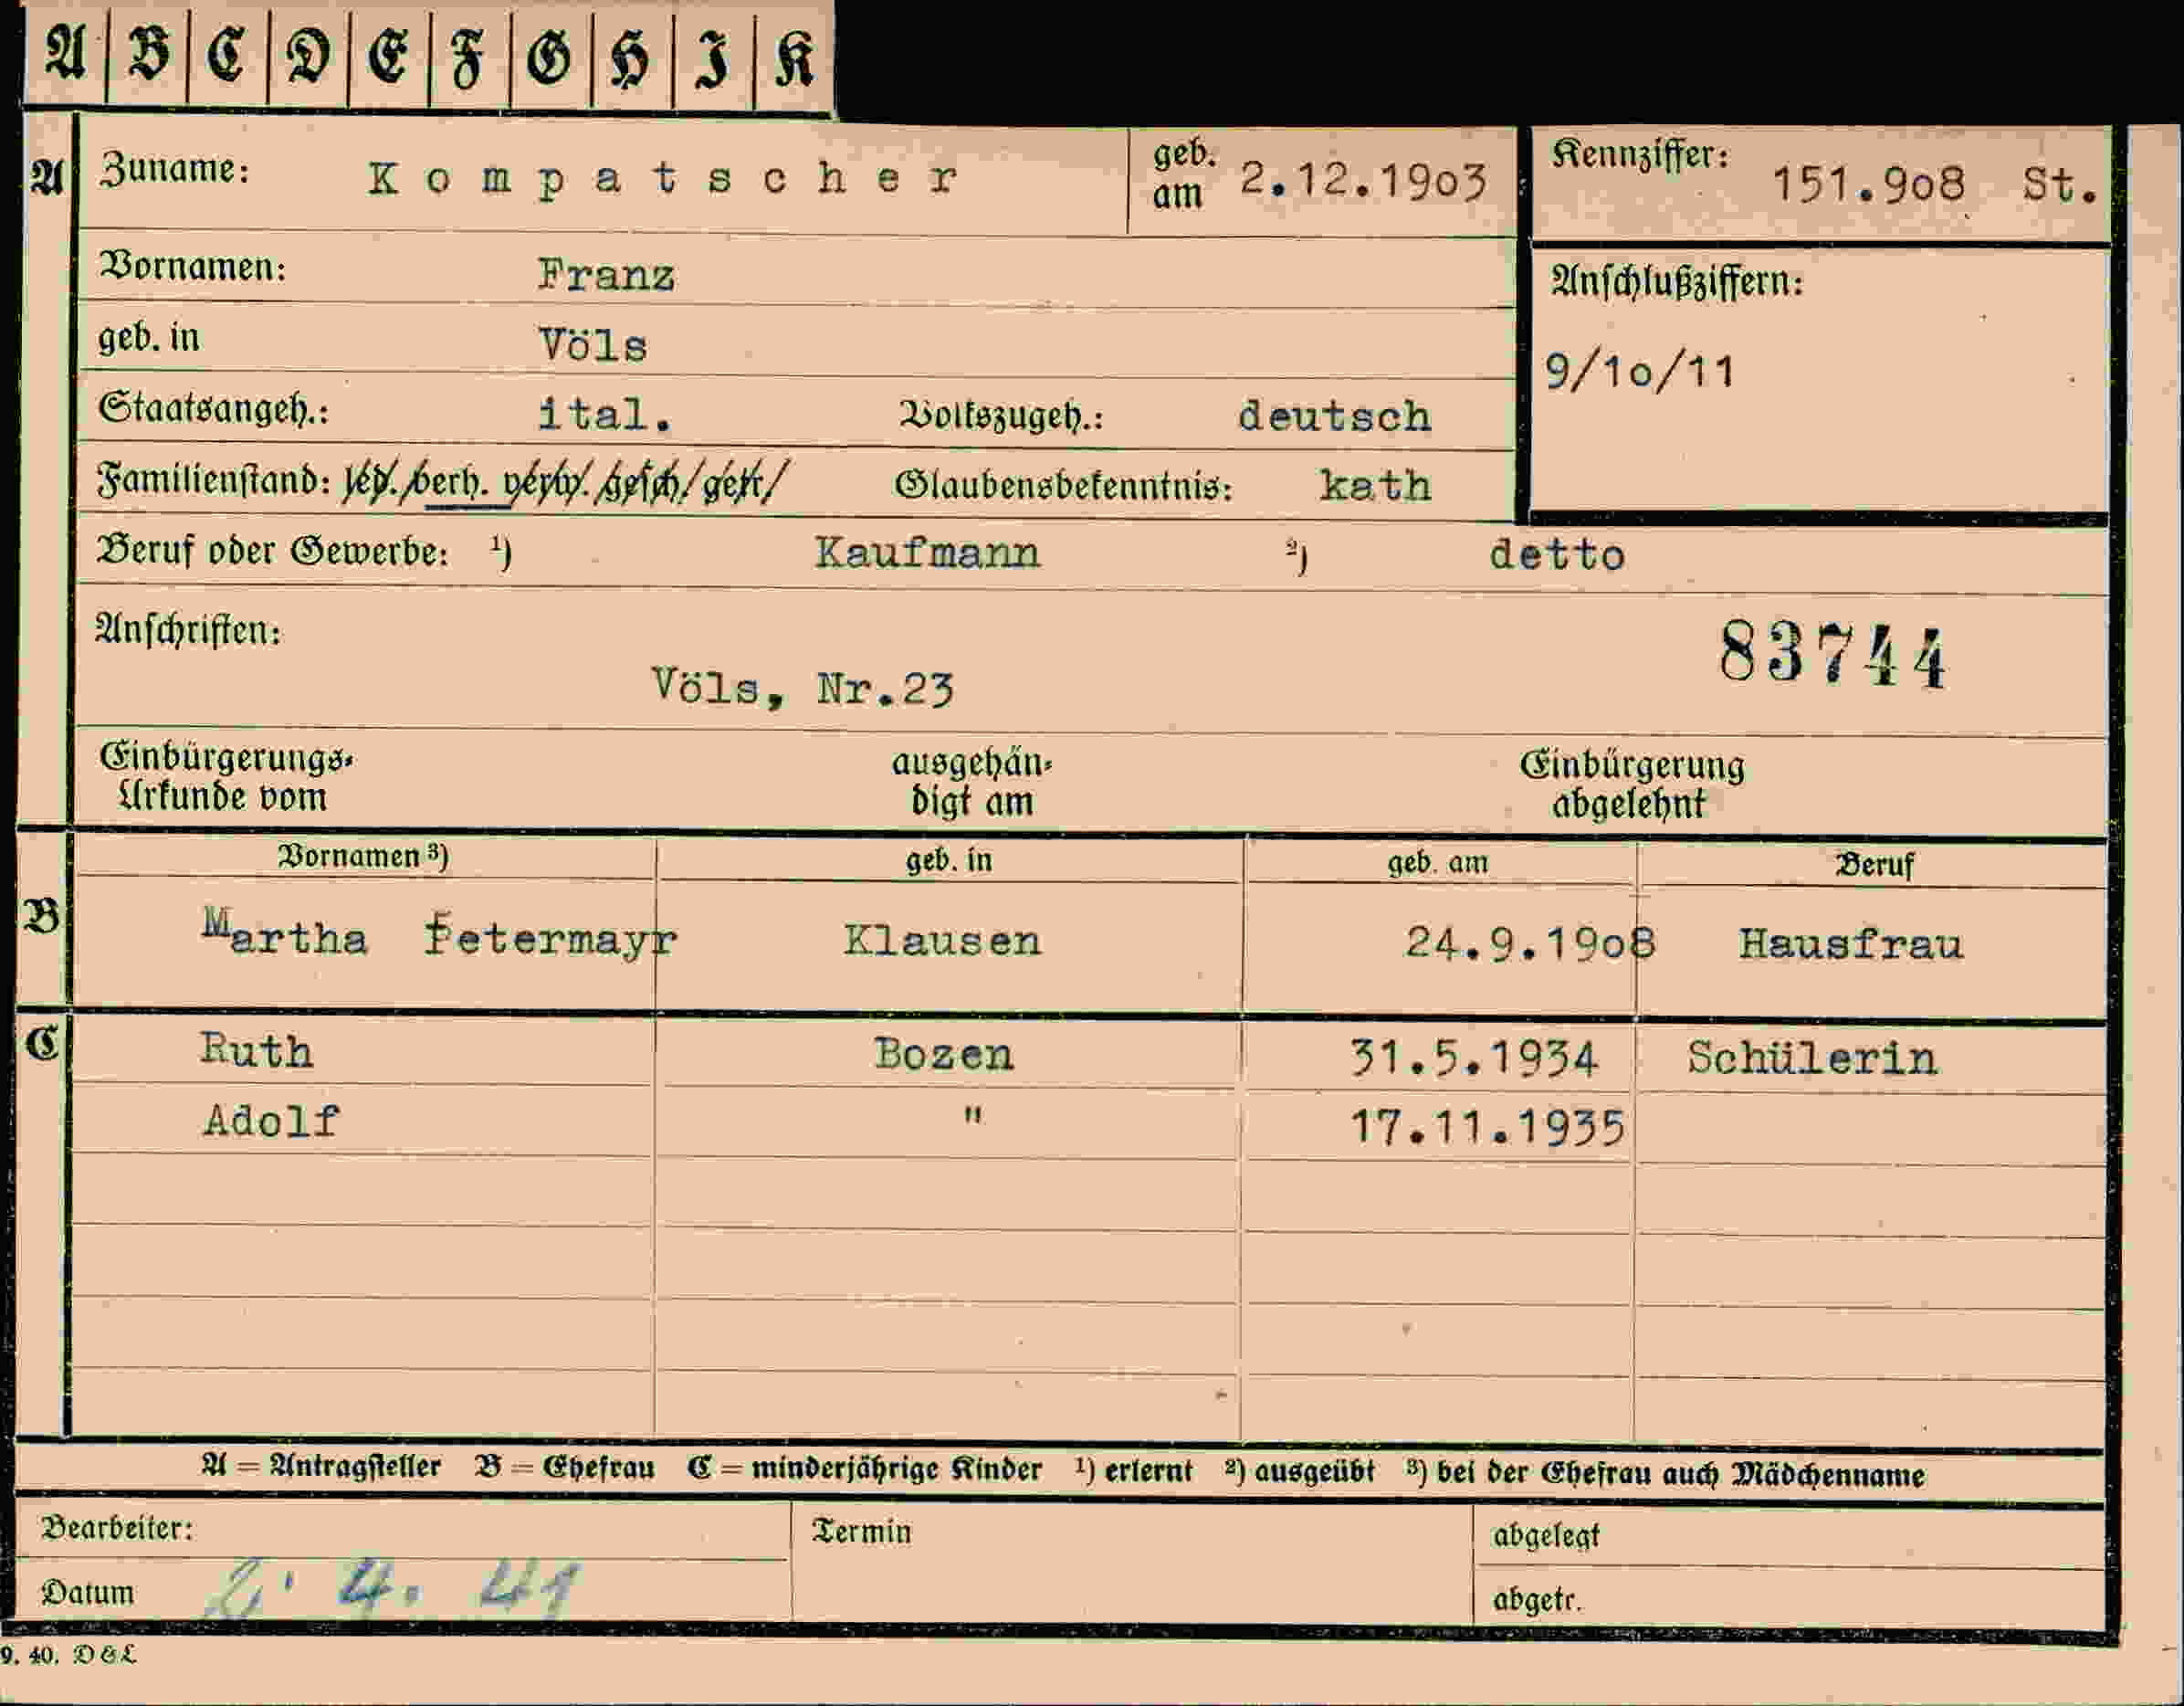 A B C D E F G H I K
A Zuname: Kompatscher geb. am 2.12.1903 Kennziffer: 151.908 St.
Vornamen: Franz
Anschlußziffern:
geb. in Völs
9/10/11
Staatsangeh.: ital. Volkszugeh.: deutsch
Familienstand: led. verh. verw. gesch. getr. Glaubensbekenntnis: kath
Beruf oder Gewerbe: ¹) Kaufmann ²) detto
Anschriften: 83744
Völs, Nr.23
Einbürgerungs-Urkunde vom ausgehändigt am Einbürgerung abgelehnt
Vornamen ³) geb. in geb. am Beruf
B Martha Petermayr Klausen 24.9.1908 Hausfrau
C Ruth Bozen 31.5.1934 Schülerin
Adolf " 17.11.1935
A = Antragsteller B = Ehefrau C = minderjährige Kinder ¹) erlernt ²) ausgeübt ³) bei der Ehefrau auch Mädchenname
Bearbeiter: Termin abgelegt
Datum 2. 4. 41 abgetr.
9. 40. D & L